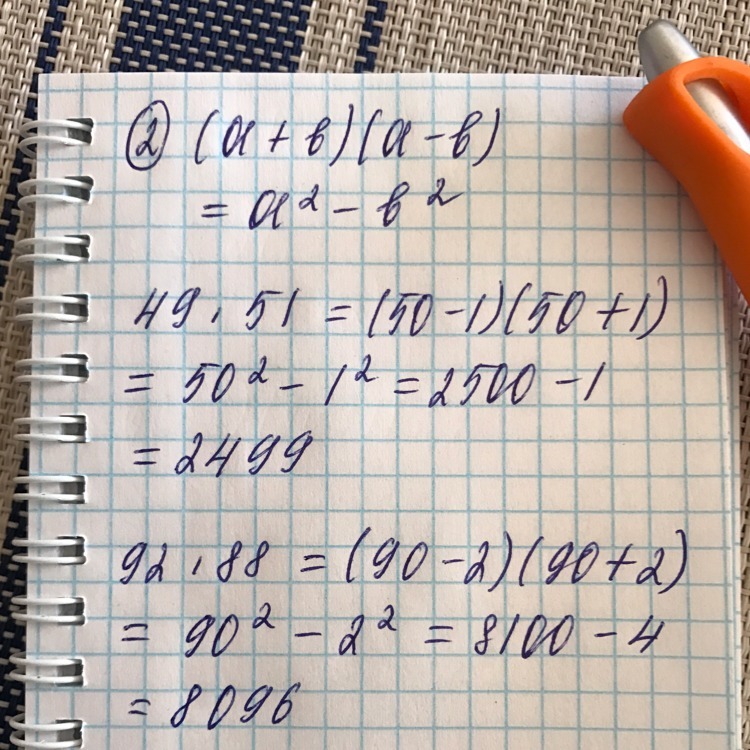 ② (a + b)(a - b)
= a² - b²
49 · 51 = (50 - 1)(50 + 1)
= 50² - 1² = 2500 - 1
= 2499
92 · 88 = (90 - 2)(90 + 2)
= 90² - 2² = 8100 - 4
= 8096